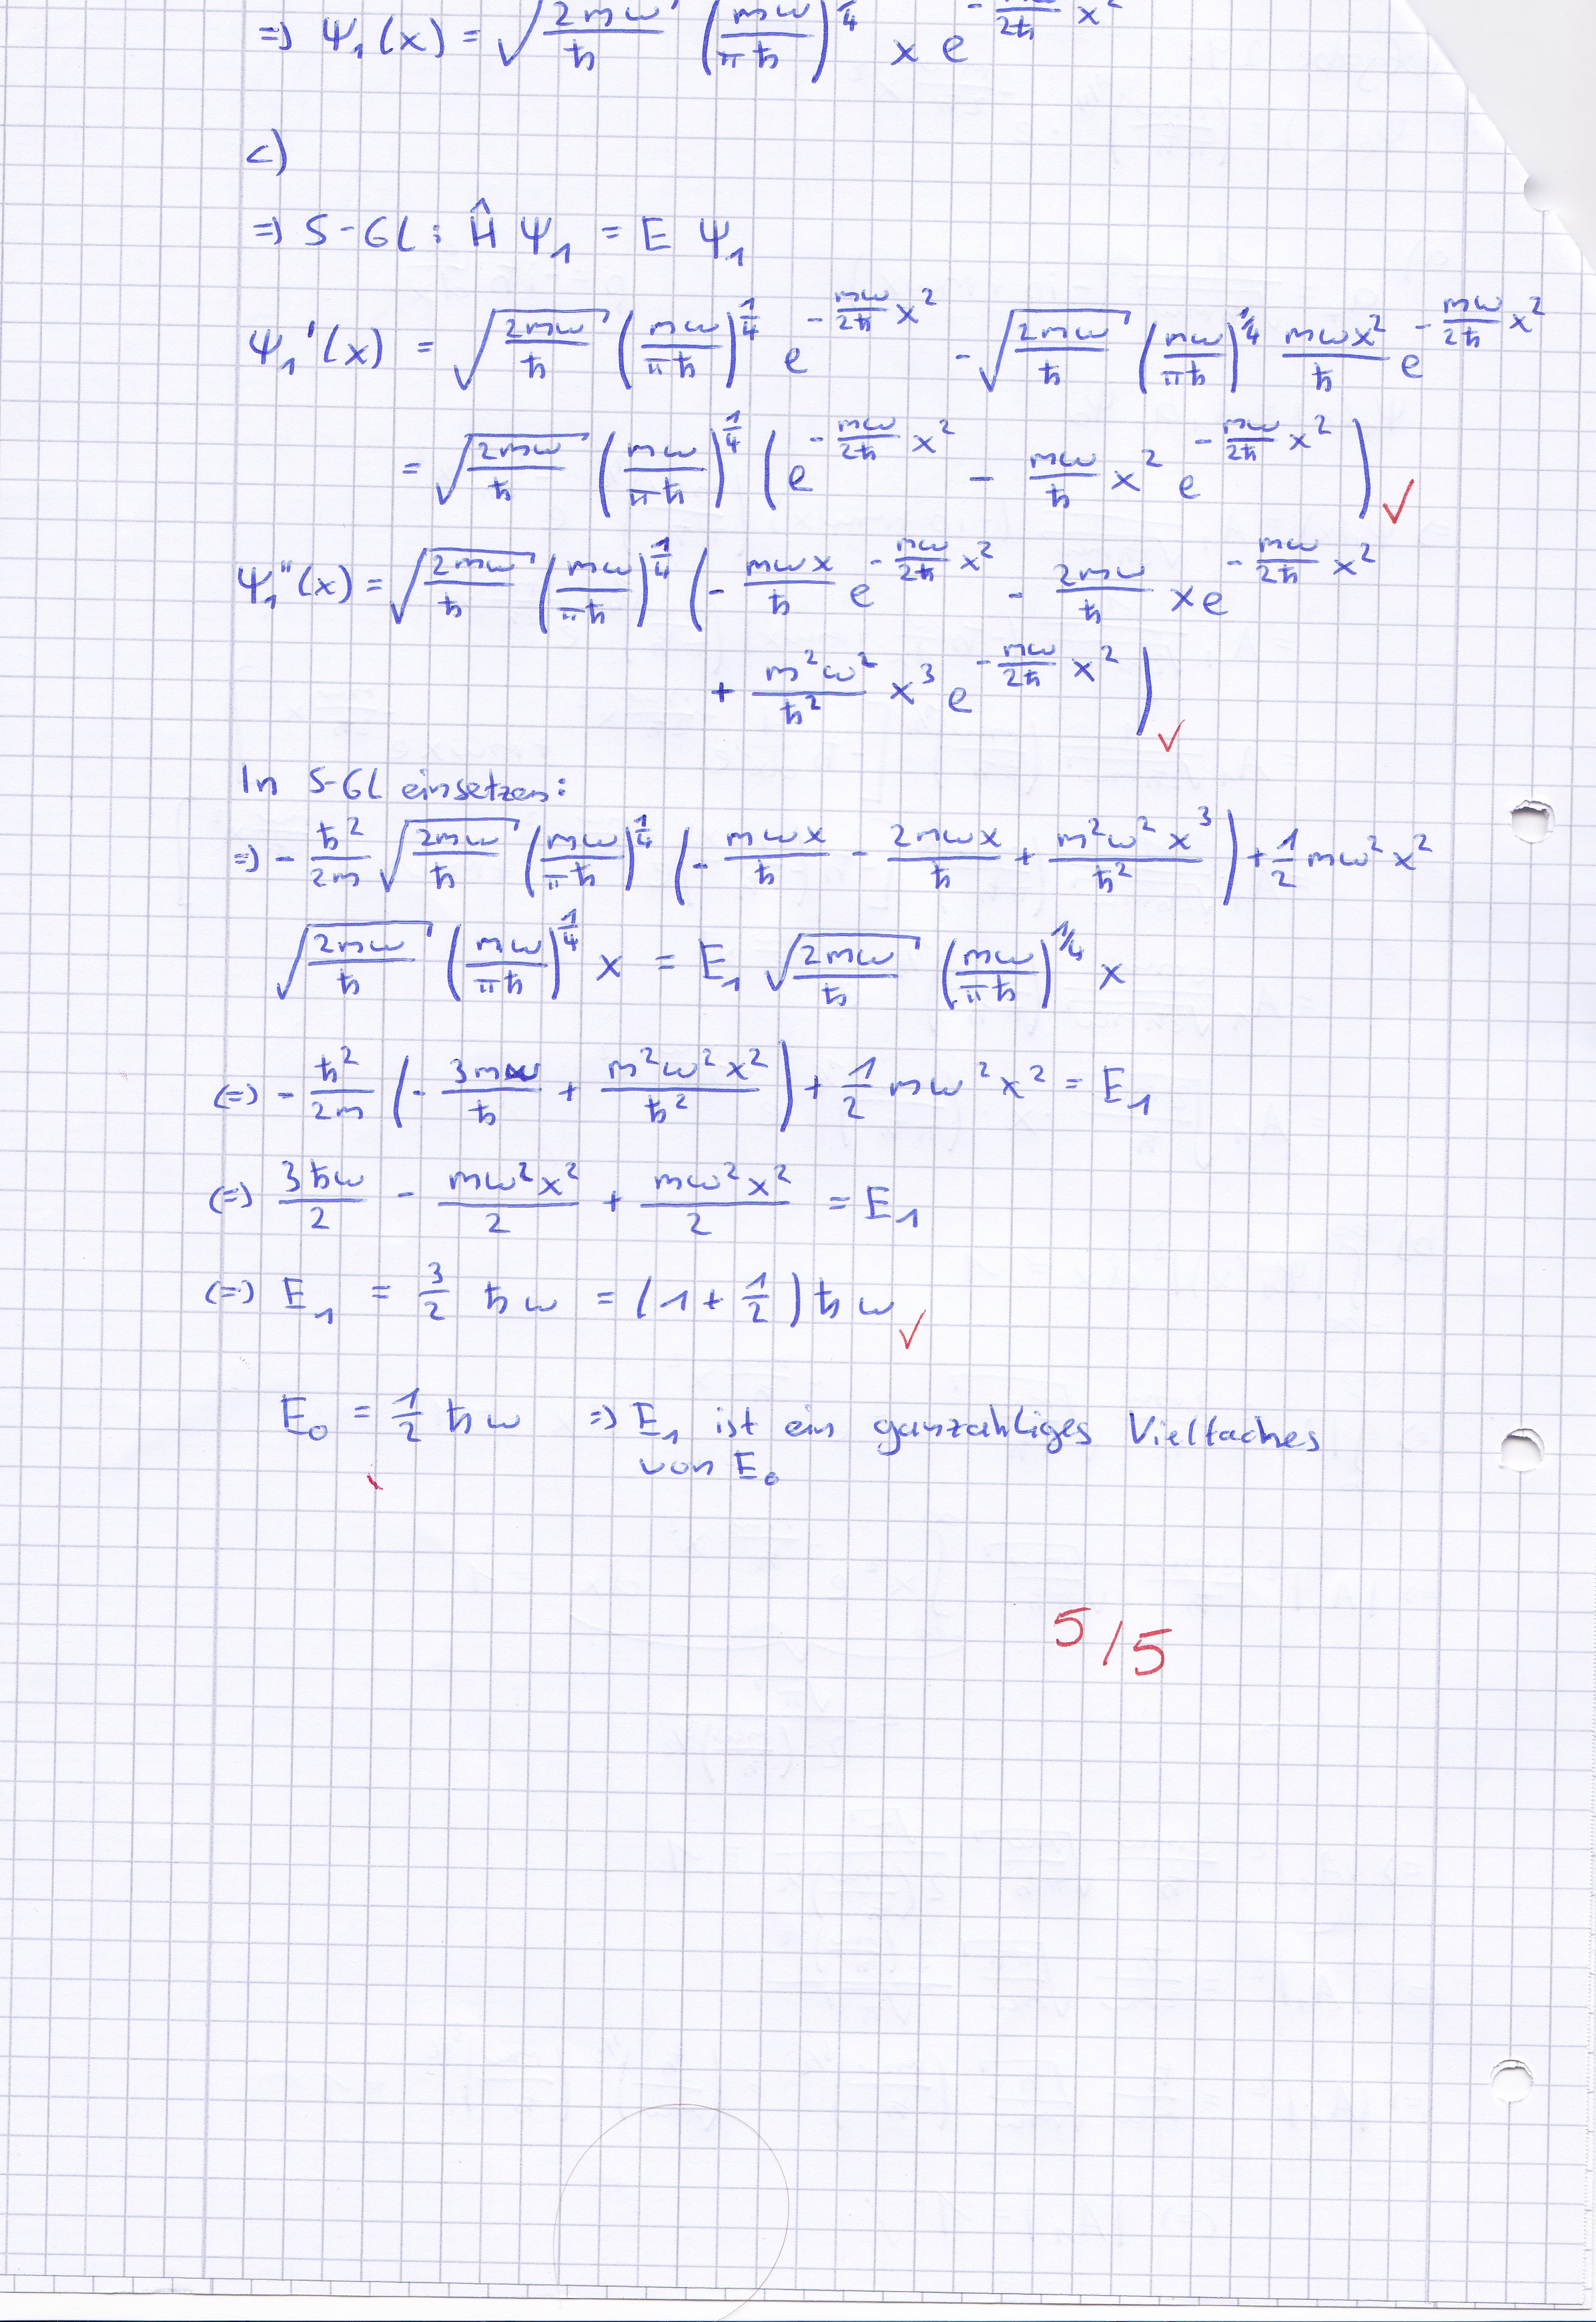 ⇒ Ψ₁(x) = √(2mω/ħ) (mω/πħ)^(1/4) x e^(-mω/2ħ x²)
c)
⇒ S-Gl: Ĥ Ψ₁ = E Ψ₁
Ψ₁'(x) = √(2mω/ħ) (mω/πħ)^(1/4) e^(-mω/2ħ x²) - √(2mω/ħ) (mω/πħ)^(1/4) mωx²/ħ e^(-mω/2ħ x²)
= √(2mω/ħ) (mω/πħ)^(1/4) (e^(-mω/2ħ x²) - mω/ħ x² e^(-mω/2ħ x²)) ✓
Ψ₁''(x) = √(2mω/ħ) (mω/πħ)^(1/4) (- mωx/ħ e^(-mω/2ħ x²) - 2mω/ħ x e^(-mω/2ħ x²)
+ m²ω²/ħ² x³ e^(-mω/2ħ x²)) ✓
In S-Gl einsetzen:
⇒ - ħ²/2m √(2mω/ħ) (mω/πħ)^(1/4) (- mωx/ħ - 2mωx/ħ + m²ω²x³/ħ²) + 1/2 mω²x²
√(2mω/ħ) (mω/πħ)^(1/4) x = E₁ √(2mω/ħ) (mω/πħ)^(1/4) x
(=) - ħ²/2m (- 3mω/ħ + m²ω²x²/ħ²) + 1/2 mω²x² = E₁
(=) 3ħω/2 - mω²x²/2 + mω²x²/2 = E₁
(=) E₁ = 3/2 ħω = (1 + 1/2) ħω ✓
E₀ = 1/2 ħω ⇒ E₁ ist ein ganzzahliges Vielfaches
von E₀
5/5